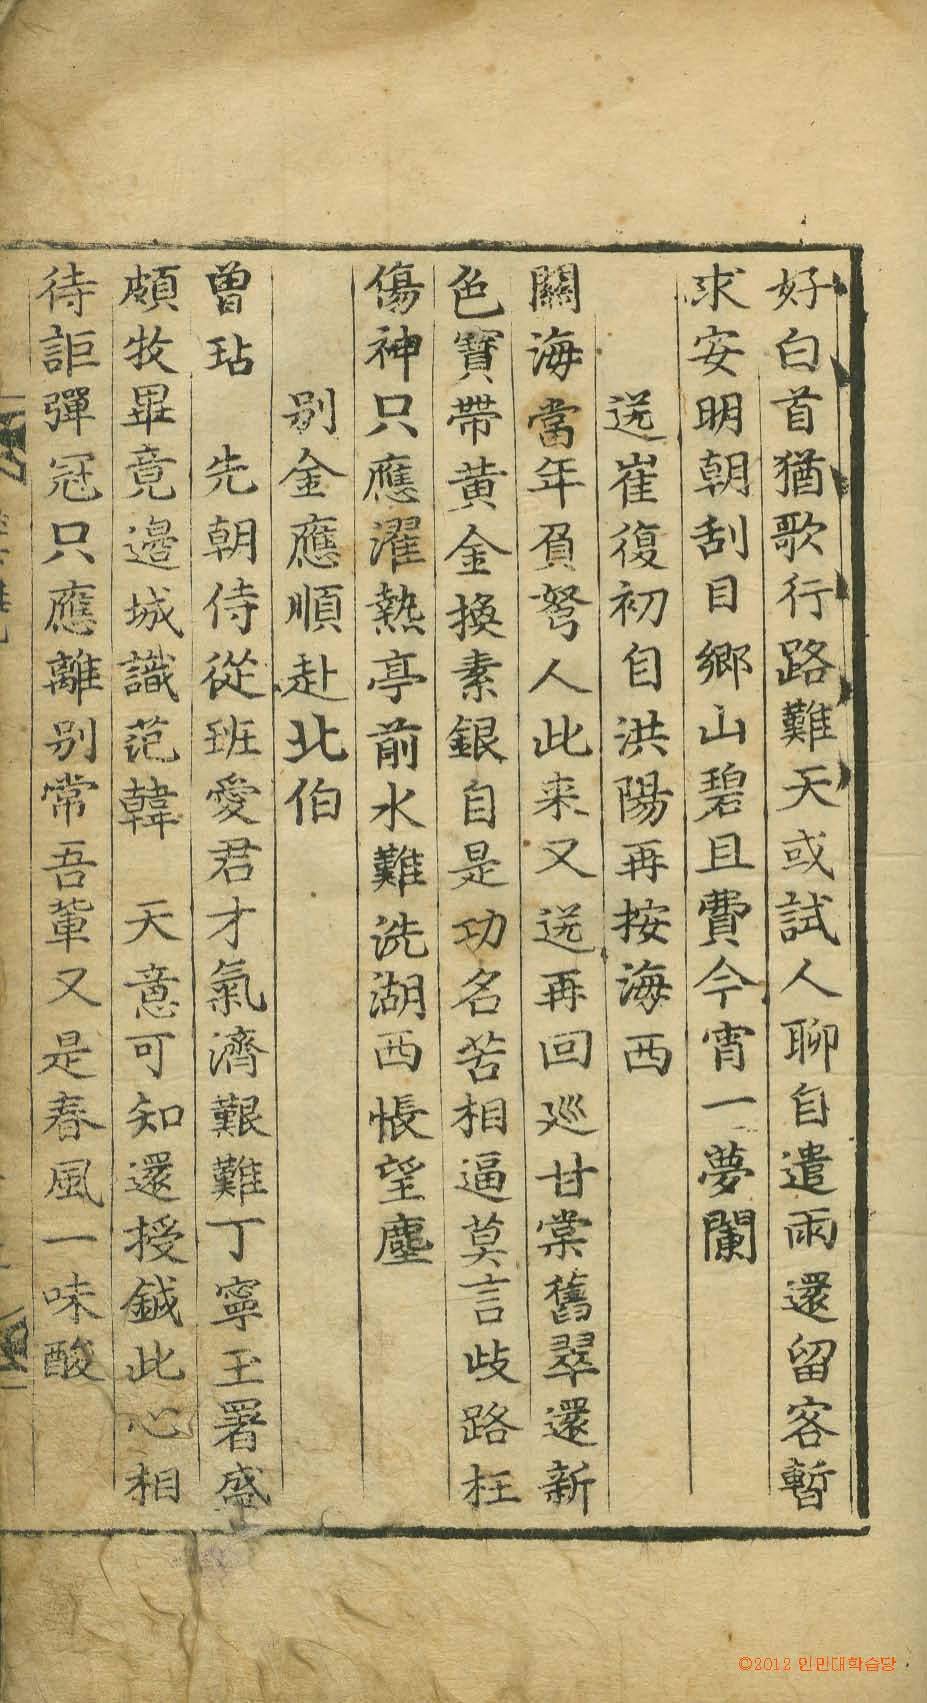 好白首猶歌行路難天或試人聊自遣雨還留客暫
求安明朝刮目鄉山碧且費今宵一夢闌
送崔復初自洪陽再按海西
關海當年負弩人此来又送再回巡甘棠舊翠還新
色寶帶黃金換素銀自是功名苦相逼莫言歧路枉
傷神只應濯熱亭前水難洗湖西悵望塵
別金應順赴北伯
曾玷　先朝侍從班愛君才氣濟艱難丁寧玉署盛
頗牧畢竟邊城識范韓　天意可知還授鉞此心相
待詎彈冠只應離別常吾軰又是春風一味酸
©2012 인민대학습당